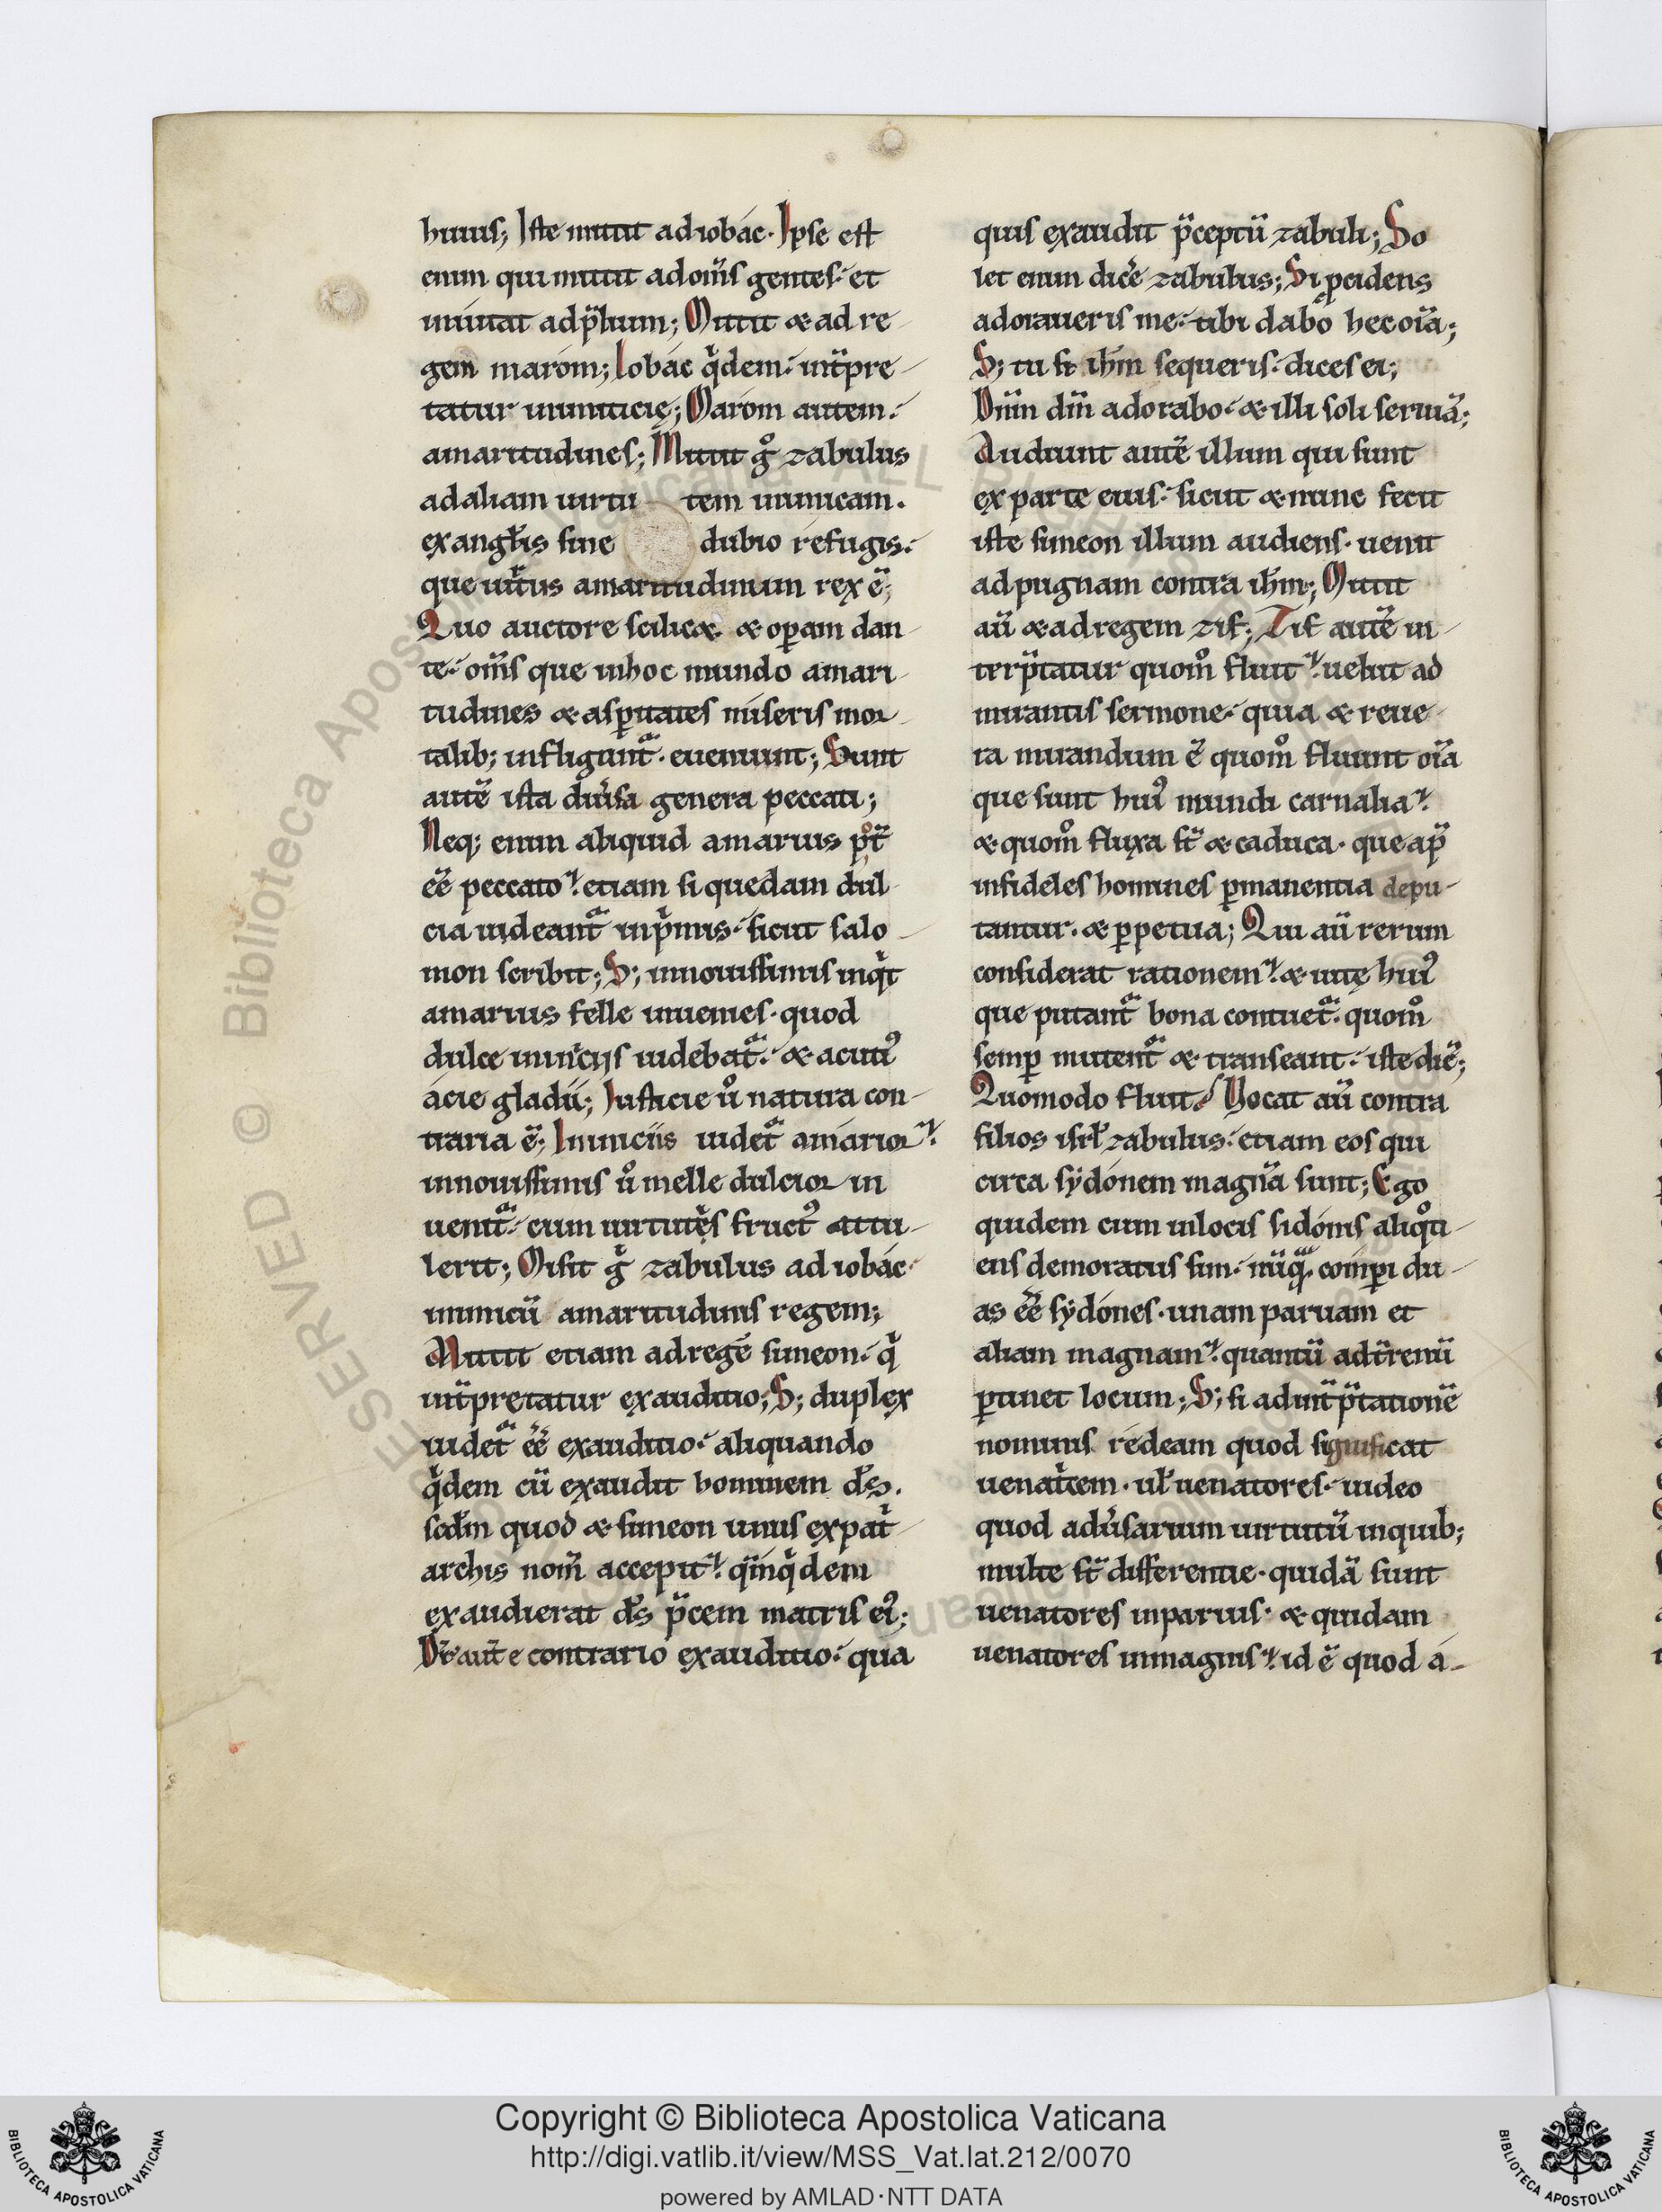 huius; Iste mittit ad iobác. Ipse est
enim qui mittit ad om̄s gentes. et
inuitat ad p̄lium; Mittit & ad re
gem marom; Iobác qͥdem. int̄pre
tatur inimicicię; Marom autem.
amaritudines; Mittit gͦ zabulus
ad aliam uirtu tem inimicam.
ex angl̄is sine dubio refugis.
que uirtus amaritudinum rex ē;
Quo auctore scilicet & oꝑam dan
te. om̄s que in hoc mundo amari
tudines & asꝑitates miseris mor
talib; infligunt̄. eueniunt; Sunt
autē ista diu̾sa genera peccati;
Neq; enim aliquid amarius pͦt̄
eē̄ peccato. etiam si quedam dul
cia uideant̄ in pͥmis. sicut salo
mon scribit; S; in nouissimis inqͥt
amarius felle inuenies. quod
dulce in iniciis uidebat̄. & acutiꝰ
acie gladii; Iusticie uͦ natura con
traria ē; In iniciis uidet̄ amarior.
in nouissimis uͦ melle dulcior in
uenit̄. cum uirtutes fructꝰ attu
lerit; Misit gͥ zabulus ad iobác
inimicū amaritudinis regem;
Mittit etiam ad regē simeon. qͥ
int̄pretatur exauditio; S; duplex
uidet̄ eē̄ exauditio. aliquando
qͥdem cū exaudit hominem d̄s.
scd̄m quod & simeon unus ex patͥ
archis nom̄ accepit. qm̄ qͥdem
exaudierat d̄s p̄cem matris eiꝰ;
Dr̄ aūt e contrario exauditio. qua
quis exaudit p̄ceptū zabuli; So
let enim dic̄e zabulus; Si ꝓcidens
adoraueris me. tibi dabo hec om̄ia;
S; tu si ih̄m sequeris. dices ei;
Dn̄m dm̄ adorabo. & illi soli seruiā;
Audiunt autē illum qui sunt
ex parte eius. sicut & nunc fecit
iste simeon illum audiens. uenit
ad pugnam contra ih̄m; Mittit
aū & ad regem zif; Zif autē in
terp̄tatur quomͦ fluit. uelut ad
mirantis sermone. quia & reue
ra mirandum ē quomͦ fluunt oīa
que sunt huiꝰ mundi carnalia.
& quomͦ fluxa st̄ & caduca. que ap̄
infideles homines ꝑmanentia depu
tantur. & ꝑpetua; Qui aū rerum
considerat rationem. & uitę huiꝰ
que putant̄ bona contuet̄. quomͦ
semꝑ mutent̄ & transeant. iste dic̄;
Quomodo fluit. Vocat aū contra
filios isrl̄ zabulus. etiam eos qui
circa sydónem magnā sunt; Ego
quidem cum in locis sidónis aliqͦti
ens demoratus sim. nūq̄. comꝑi du
as eē̄ sydónes. unam paruam et
aliam magnam. quantū ad t̄renū
ꝑtinet locum; S; si ad int̄p̄tationē
nominis redeam quod significat
uenatͥcem. ul̄ uenatores. uideo
quod adu̾sarium uirtutū in quib;
multe st̄ differentie. quidā sunt
uenatores in paruis. & quidam
uenatores in magnis. id ē quod a
© Biblioteca Apostolica Vaticana ALL RIGHTS RESERVED
Copyright © Biblioteca Apostolica Vaticana
http://digi.vatlib.it/view/MSS_Vat.lat.212/0070
powered by AMLAD·NTT DATA
BIBLIOTECA APOSTOLICA VATICANA
BIBLIOTECA APOSTOLICA VATICANA